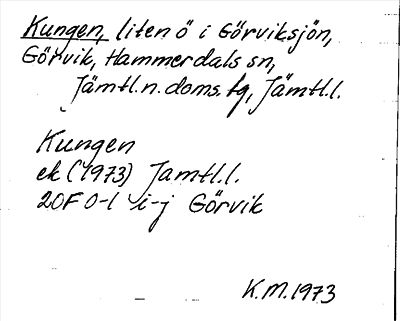 Kungen, liten ö i Görviksjön,
Görvik, Hammerdals sn,
Jämtl.n.doms.fg, Jämtl.l.
Kungen
ek (1973) Jamtl.l.
20F 0-1 i-j Görvik
K.M.1973